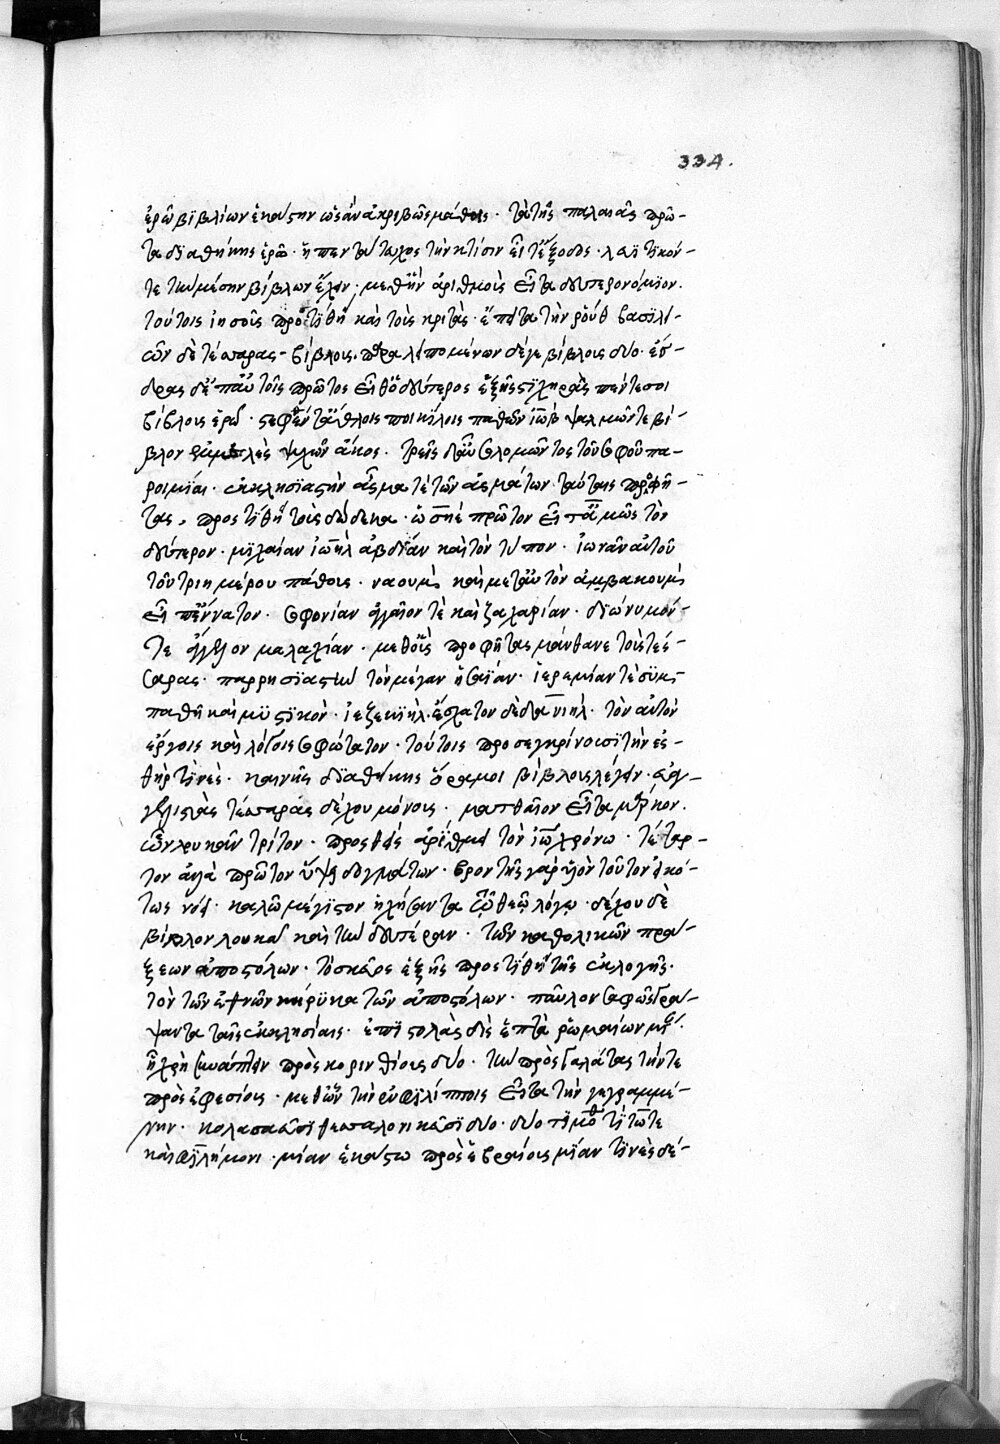 334.
ἐρῶ βϊβλίων ἑκάστην ὡς ἂν ἀκριβῶς μάθοις · τὰ τῆς παλαιᾶς πρῶ-
τα διαθήκης ἐρῶ · ἡ πεντάτευχος τὴν κτίσιν εἶτ' ἔξοδος · λευϊτικόν-
τε τὴν μέσην βίβλον ἔχειν · μεθ' ἣν ἀριθμοὺς εἶτα δευτερονόμιον.
τούτοις ἰησοῦν προστίθει καὶ τοὺς κριτὰς · ἔπειτα τὴν ῥούθ βασιλει-
ῶν δὲ τέσσαρας βίβλους · παραλιπομένων δέ γε βίβλους δυο · ἔσ-
δρας δὲ ἐπ' αὐτοῖς πρῶτος εἶθ' ὁ δεύτερος ἑξῆς στιχηρὰς πέντε σοι
βίβλους ἐρῶ · στεφθέντα ἄθλοις ποικίλοις παθῶν ἰὼβ ψαλμῶν τε βί-
βλον ἐμμελὲς ψυχῶν ἄκος · τρεῖς δ' αὖ σολομῶντος τοῦ σοφοῦ πα-
ροιμίαι · ἐκκλησϊαστὴν ἆσμα τὲ τῶν ἀσμάτων ταύταις προφή-
τας · προστίθει τοὺς δώδεκα · ὡσηὲ πρῶτον εἶτ' ἀμὼς τὸν
δεύτερον · μιχαίαν ἰωὴλ ἀβδίαν καὶ τὸν τύπον · ἰωνᾶν αὐτοῦ
τοῦ τριημέρου πάθους · ναοὺμ καὶ μετ' αὐτὸν ἀμβακοὺμ
εἶτ' ἔννατον · σοφονίαν ἀγγαῖον τὲ καὶ ζαχαρίαν · διώνυμόν-
τε ἄγγελον μαλαχίαν · μεθ' οὓς προφήτας μάνθανε τοὺς τέσ-
σαρας · παρρησϊαστὴν τὸν μέγαν ἡσαΐαν · ἱερεμίαν τὲ συμ-
παθῆ καὶ μυστικὸν · ἰεζεκιὴλ · ἔσχατον δὲ δανιὴλ · τὸν αὐτὸν
ἔργοις καὶ λόγοις σοφώτατον · τούτοις προσεγκρίνουσι τὴν ἐσ-
θήρ τινὲς · καινῆς διαθήκης ὥρα μοι βίβλους λέγειν · εὐαγ-
γελιστὰς τέσσαρας δέχου μόνους · ματθαῖον εἶτα μάρκον ·
ὧν λουκᾶν τρίτον · προσθεὶς ἀρίθμει τὸν ἰωάννην χρόνω · τέταρ-
τον ἀλλὰ πρῶτον ὕψει δογμάτων · βροντῆς γὰρ υἱὸν τοῦτον εἰκό-
τως καλῶ μέγιστον ἠχήσαντα τῷ θεῷ λόγῳ · δέχου δὲ
βίβλον λουκᾶ καὶ τὴν δευτέραν · τῶν καθολικῶν πρά-
ξεων ἀποστόλων · τὸ σκεῦος ἑξῆς προστίθει τῆς ἐκλογῆς ·
τὸν τῶν ἐθνῶν κήρϋκα τῶν ἀποστόλων · παῦλον σοφῶς γρά-
ψαντα ταῖς ἐκκλησίαις · ἐπϊστολὰς δὶς ἑπτὰ ῥωμαίων μίαν ·
ᾗ χρὴ συνάπτειν πρὸς κορινθίους δύο · τὴν πρὸς γαλάτας τήν τε
πρὸς ἐφεσίους · μεθ' ὧν τὴν ἐν φιλίπποις εἶτα τὴν γεγραμμέ-
νην · κολασσαεῦσϊ θεσσαλονικεῦσϊ δυο · δυο τιμοθ τίτω τε
καὶ φιλήμονι · μίαν ἑκάστω πρὸς ἑβραίους μίαν τϊνὲς δέ-